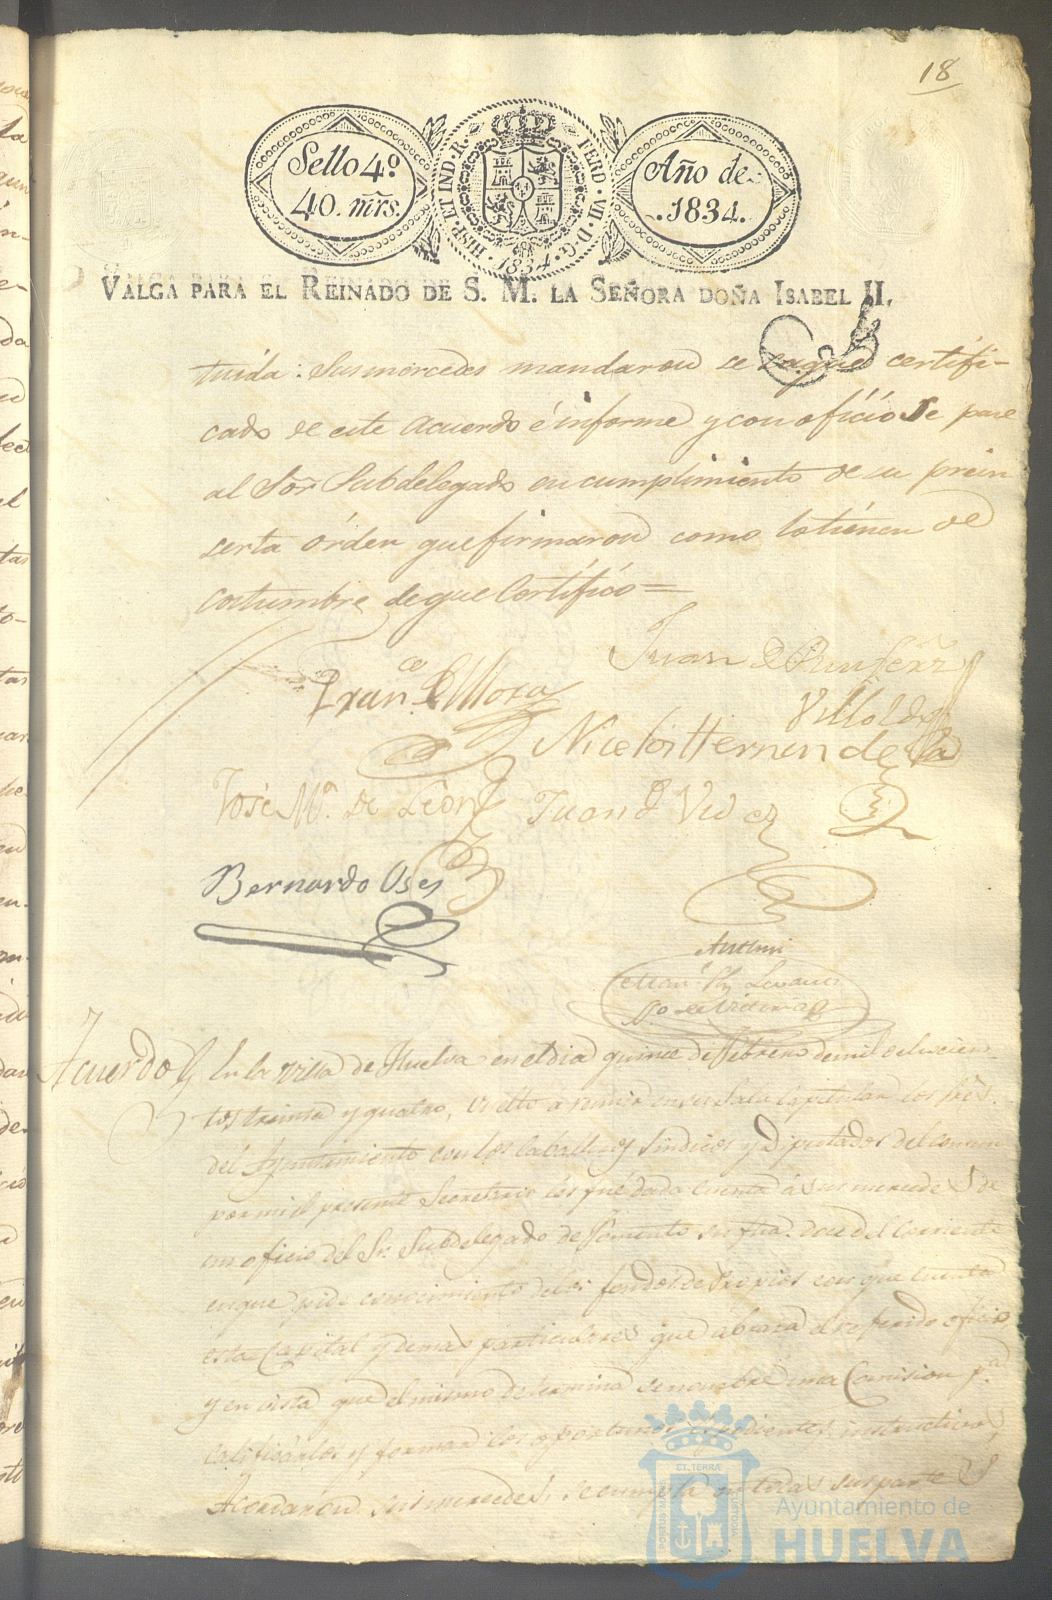 18
Sello 4º
40. mrs.
HISP. ET IND. R. FERD. VII. D. G.
1834
Año de
1834.
VALGA PARA EL REINADO DE S. M. LA SEÑORA DOÑA ISABEL II.
tuida: Sus mercedes mandaron se saque certifi-
cado de este Acuerdo é informe y con oficio Se pase
al Sor Subdelegado en cumplimiento de su prein
serta órden que firmaron como lo tienen de
costumbre de que Certifico=
Juan
Franco de Mora
Villald
Hernandez
José Mª. de León
Juan de Vides
Bernardo Oses
Antemi
Acuerdo
En la Villa de Huelva en el dia quince de Febrero de mil ochocien
tos treinta y quatro, vuelto a reunir en su Sala Capitular los Sres.
del Ayuntamiento con los Caballeros Sindicos y Diputados del comun
por mi el presente Secretario les fué dada cuenta á sus mercedes de
un oficio del Sr. Subdelegado de Fomento su fha. doce del Corriente
en que pide conocimiento de los fondos de Propios con que cuenta
esta Capital y demas particulares que abraza el referido oficio
y en vista que el mismo determina se nombre una Comision pª
calificarlos y formar los oportunos espedientes instructivos
Acordaron sus mercedes, se cumpla en todas sus partes
Ayuntamiento de
HUELVA